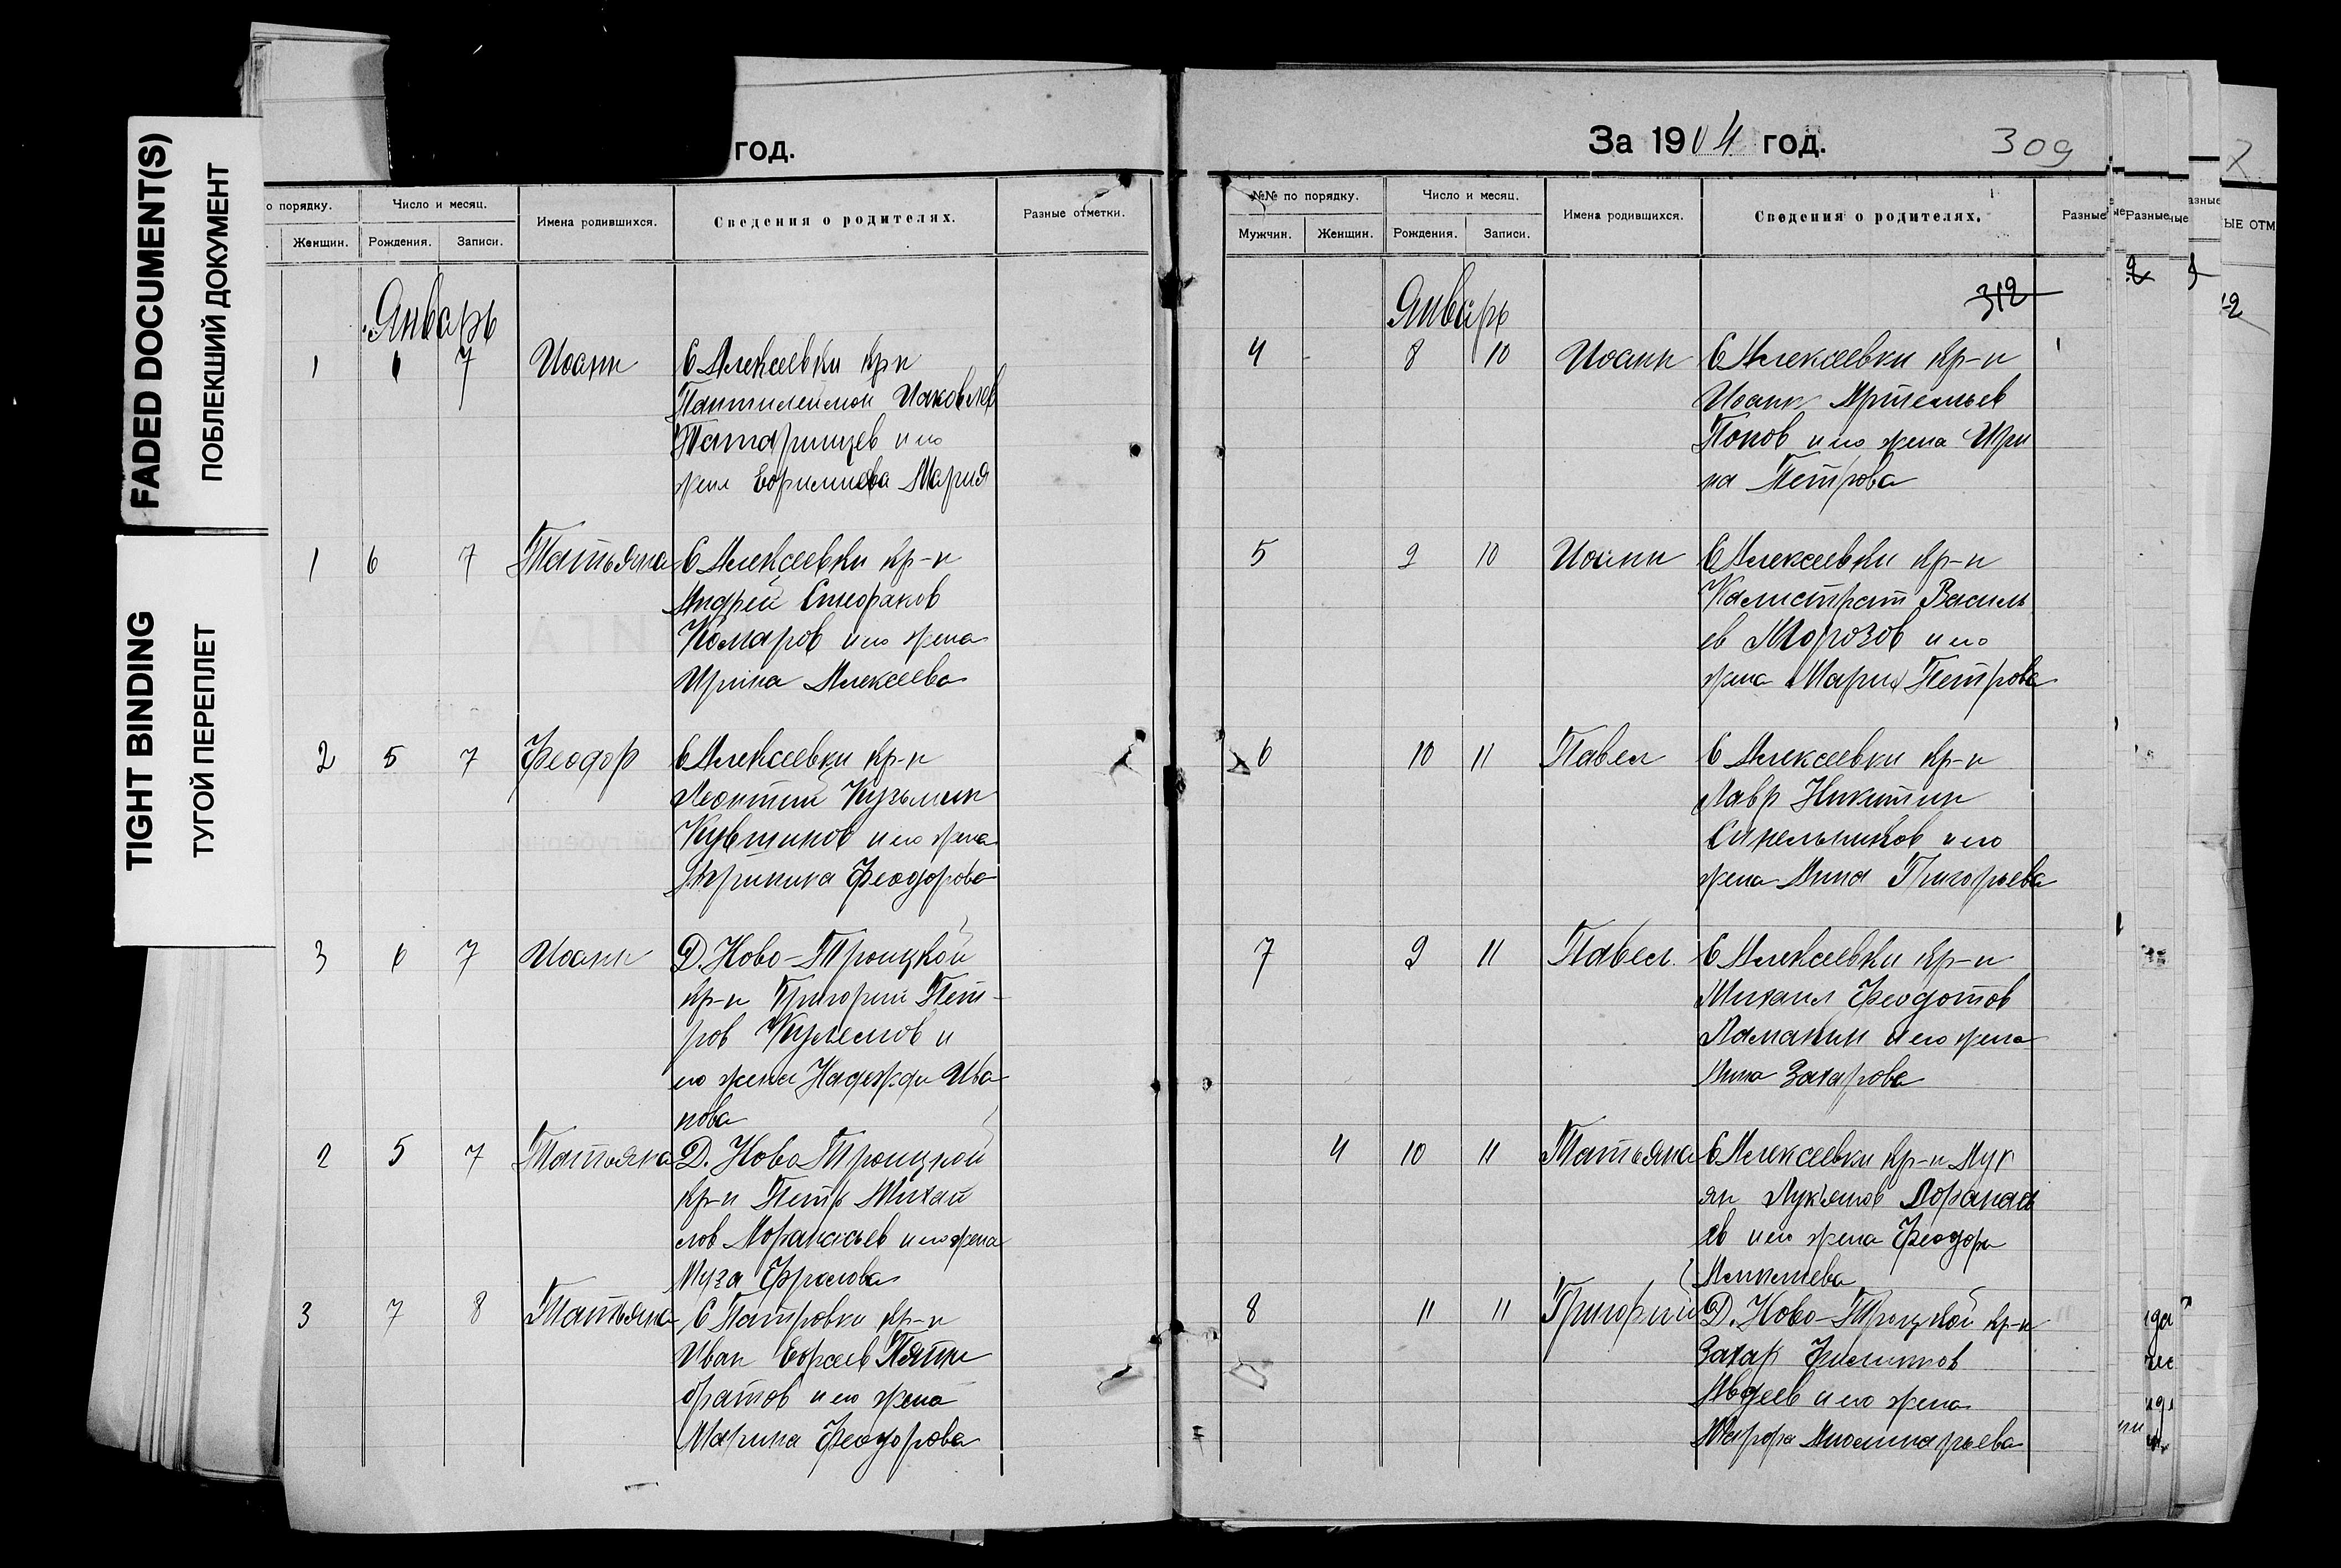 FADED DOCUMENT(S)
ПОБЛЕКШИЙ ДОКУМЕНТ
TIGHT BINDING
ТУГОЙ ПЕРЕПЛЕТ
год.
о порядку. Число и месяц. Имена родившихся. Сведения о родителях. Разные отметки.
Женщин. Рождения. Записи.
Январь
1 6 7 Иоанн С Алексеевки кр-н
Пантилеймон Иаковлев
Татаринцев и его
жена Евфимиева Мария
1 6 7 Татьяна С Алексеевки кр-н
Андрей Стефанов
Комаров и его жена
Ирина Алексеева
2 5 7 Феодор С Алексеевки кр-н
Леонтий Кузьмин
Кувшинов и его жена
Феодорова
3 6 7 Иоанн Д. Ново-Троицкой
кр-н Григорий Пет-
ров Кулешов и
его жена Надежда Ива
нова
2 5 7 Татьяна Д. Ново Троицкой
кр-н Петр Михай
лов Афанасьев и его жена
Фролова
3 7 8 Татьяна С Патровки кр-н
Иван Пяти
братов и его жена
Марина Феодорова
За 1904 год. 309
№№ по порядку. Число и месяц. Имена родившихся. Сведения о родителях. Разные
Мужчин. Женщин. Рождения. Записи.
Январь 312
4 8 10 Иоанн С Алексеевки кр-н
Иоанн Артемьев
Попов и его жена Ири
на Петрова
5 9 10 Иоанн С Алексеевки кр-н
Калистрат Василь
ев Морозов и его
жена Мария Петрова
6 10 11 Павел С Алексеевки кр-н
Лавр Никитин
Синельников и его
жена Анна Григорьева
7 9 11 Павел С Алексеевки кр-н
Михаил Феодотов
Ламакин и его жена
Анна Захарова
4 10 11 Татьяна С Алексеевки кр-н Лук
ян Лукьянов Афанась
ев и его жена Феодора
8 11 11 Григорий Д. Ново-Троицкой кр-н
Захар Филиппов
Авдеев и его жена
Мавра